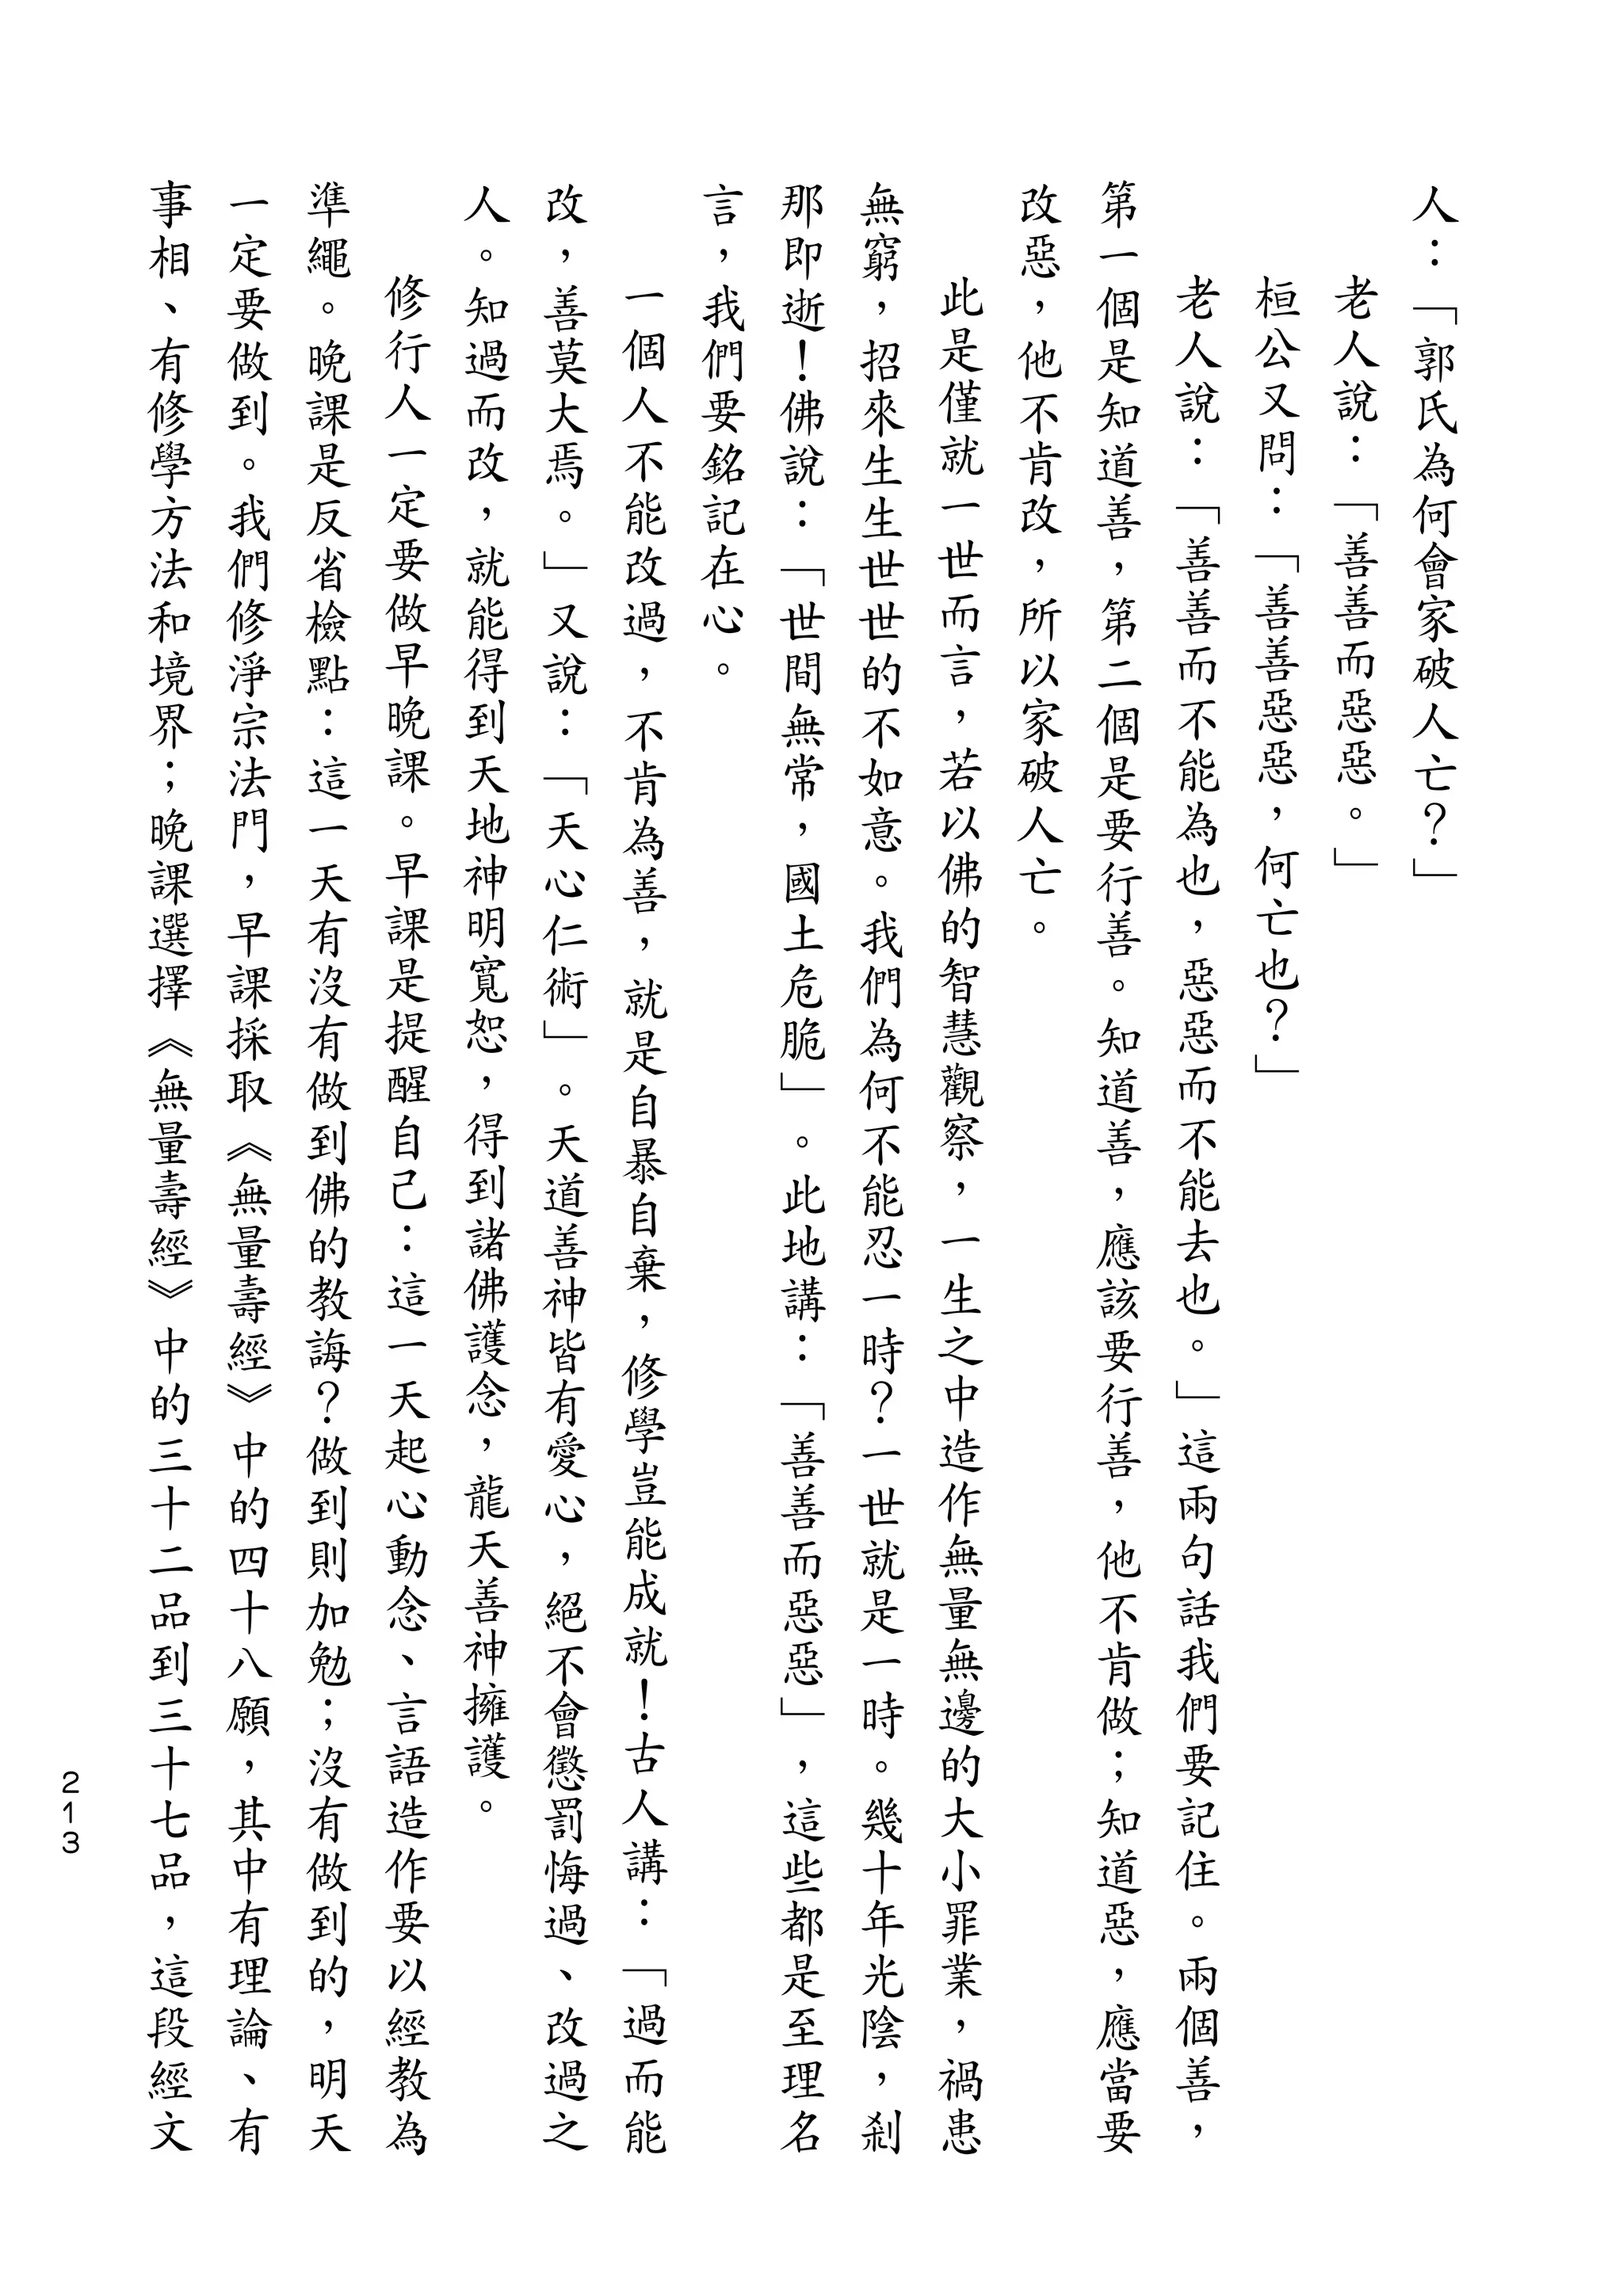 人：「郭氏為何會家破人亡？」
老人說：「善善而惡惡。」
桓公又問：「善善惡惡，何亡也？」
老人說：「善善而不能為也，惡惡而不能去也。」這兩句話我們要記住。兩個善，
第一個是知道善，第二個是要行善。知道善，應該要行善，他不肯做；知道惡，應當要
改惡，他不肯改，所以家破人亡。
此是僅就一世而言，若以佛的智慧觀察，一生之中造作無量無邊的大小罪業，禍患
無窮，招來生生世世的不如意。我們為何不能忍一時？一世就是一時。幾十年光陰，剎
那即逝！佛說：「世間無常，國土危脆」。此地講：「善善而惡惡」，這些都是至理名
言，我們要銘記在心。
一個人不能改過，不肯為善，就是自暴自棄，修學豈能成就！古人講：「過而能
改，善莫大焉。」又說：「天心仁術」。天道善神皆有愛心，絕不會懲罰悔過、改過之
人。知過而改，就能得到天地神明寬恕，得到諸佛護念，龍天善神擁護。
修行人一定要做早晚課。早課是提醒自己：這一天起心動念、言語造作要以經教為
準繩。晚課是反省檢點：這一天有沒有做到佛的教誨？做到則加勉；沒有做到的，明天
一定要做到。我們修淨宗法門，早課採取《無量壽經》中的四十八願，其中有理論、有
事相、有修學方法和境界；晚課選擇《無量壽經》中的三十二品到三十七品，這段經文
213